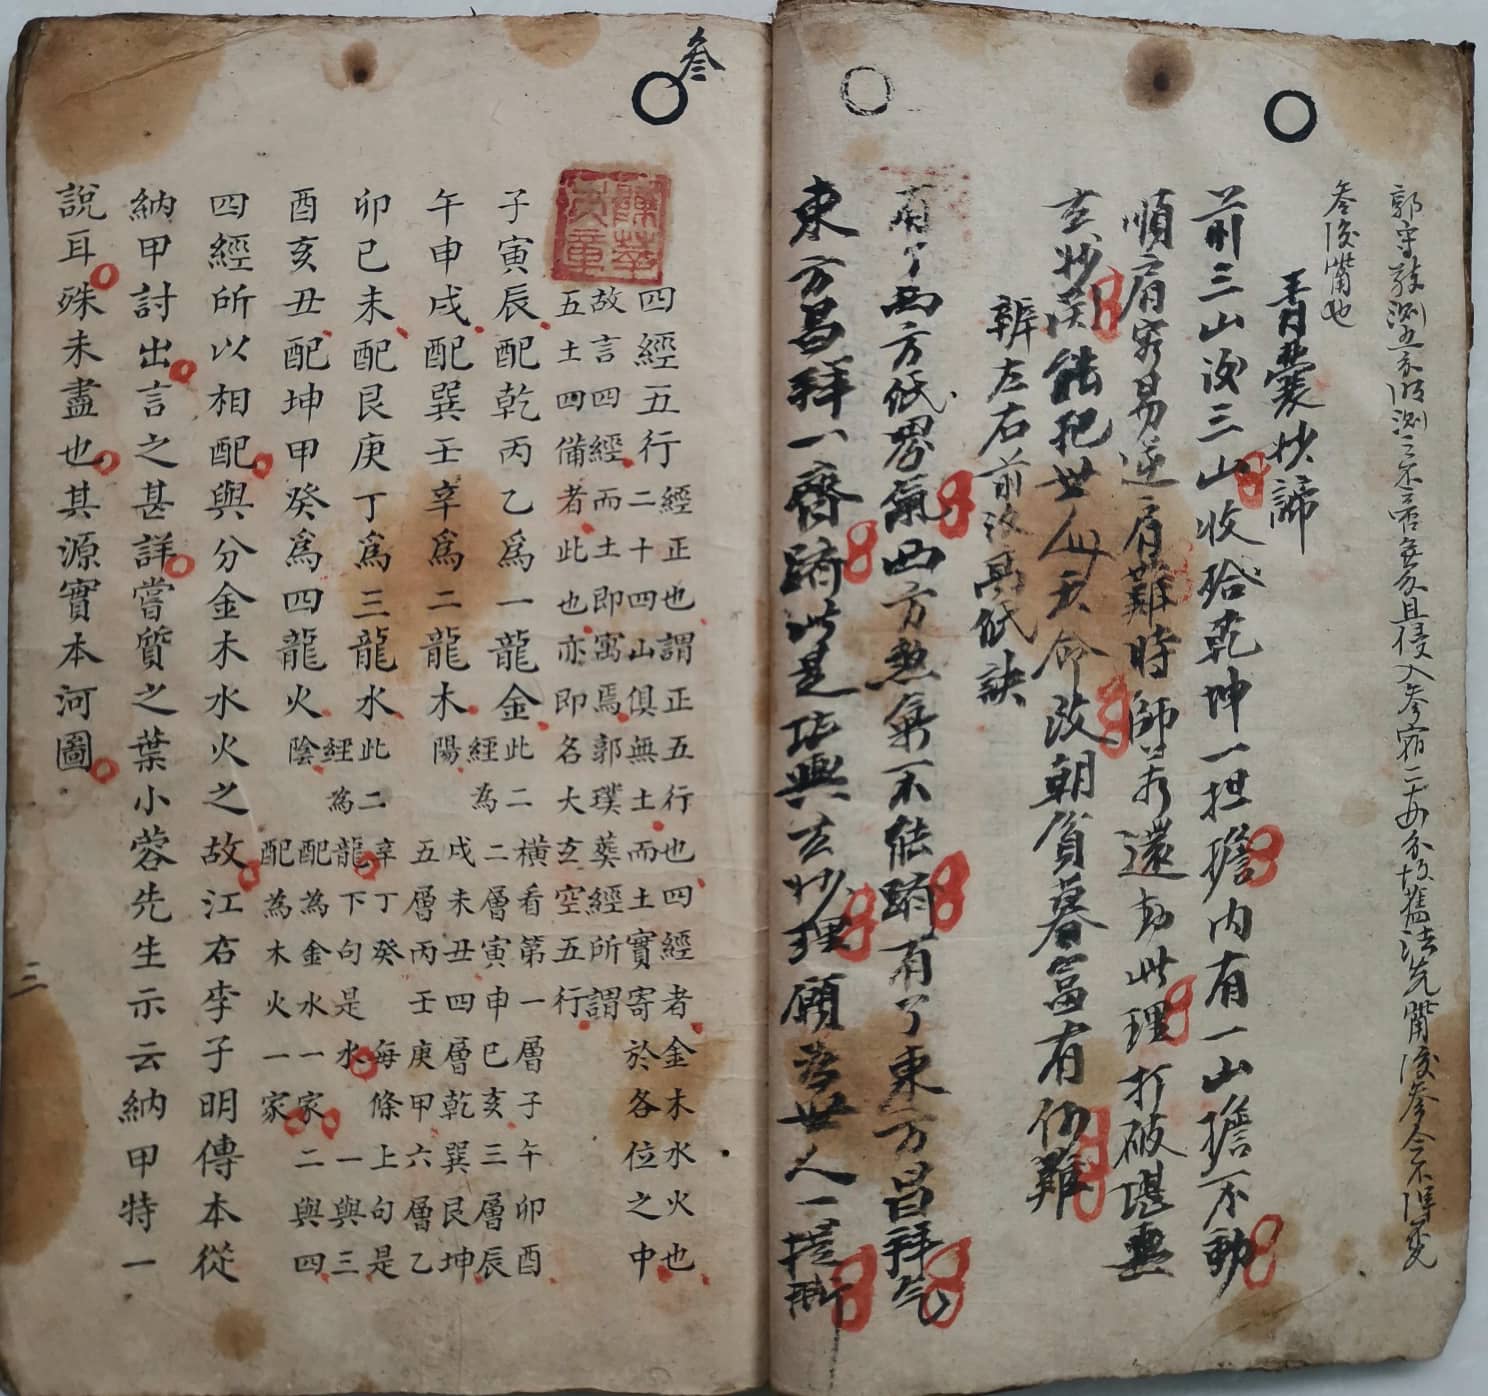 郭守敬測五分後測之不啻無分且侵入參宿二十四分故舊法先觜後參今不得不
參後觜也
青囊妙諦
前三山後三山收拾乾坤一担擔內有一山擔不動
順肩容易逆肩難時師若還動此理打破堪輿
玄妙関能把世人天命改朝貧暮富有何難
辨左右前後高低訣
有了西方低男氣西方無氣不能歸有了東方昌拜氣
東方昌拜一齊歸此是堪輿玄妙理願為世人一提醒
叁
四經五行
經正也謂正五行也四經者金木水火也
二十四山俱無土而土實寄於各位之中
故言四經而土即寓焉郭璞葬經所謂
五土四備者此也亦即名大玄空五行
子寅辰配乾丙乙為一龍金
午申戌配巽壬辛為二龍木
此二經為陽
橫看第一層子午卯酉
二層寅申巳亥三層辰
戌未丑四層乾巽艮坤
五層丙壬庚甲六層乙
辛丁癸
卯巳未配艮庚丁為三龍水
酉亥丑配坤甲癸為四龍火
此二經為陰
每條上句是
龍下句是水一與三
配為金水一家二與四
配為木火一家
四經所以相配與分金木水火之故江右李子明傳本從
納甲討出言之甚詳嘗質之葉小蓉先生示云納甲特一
說耳殊未盡也其源實本河圖
三